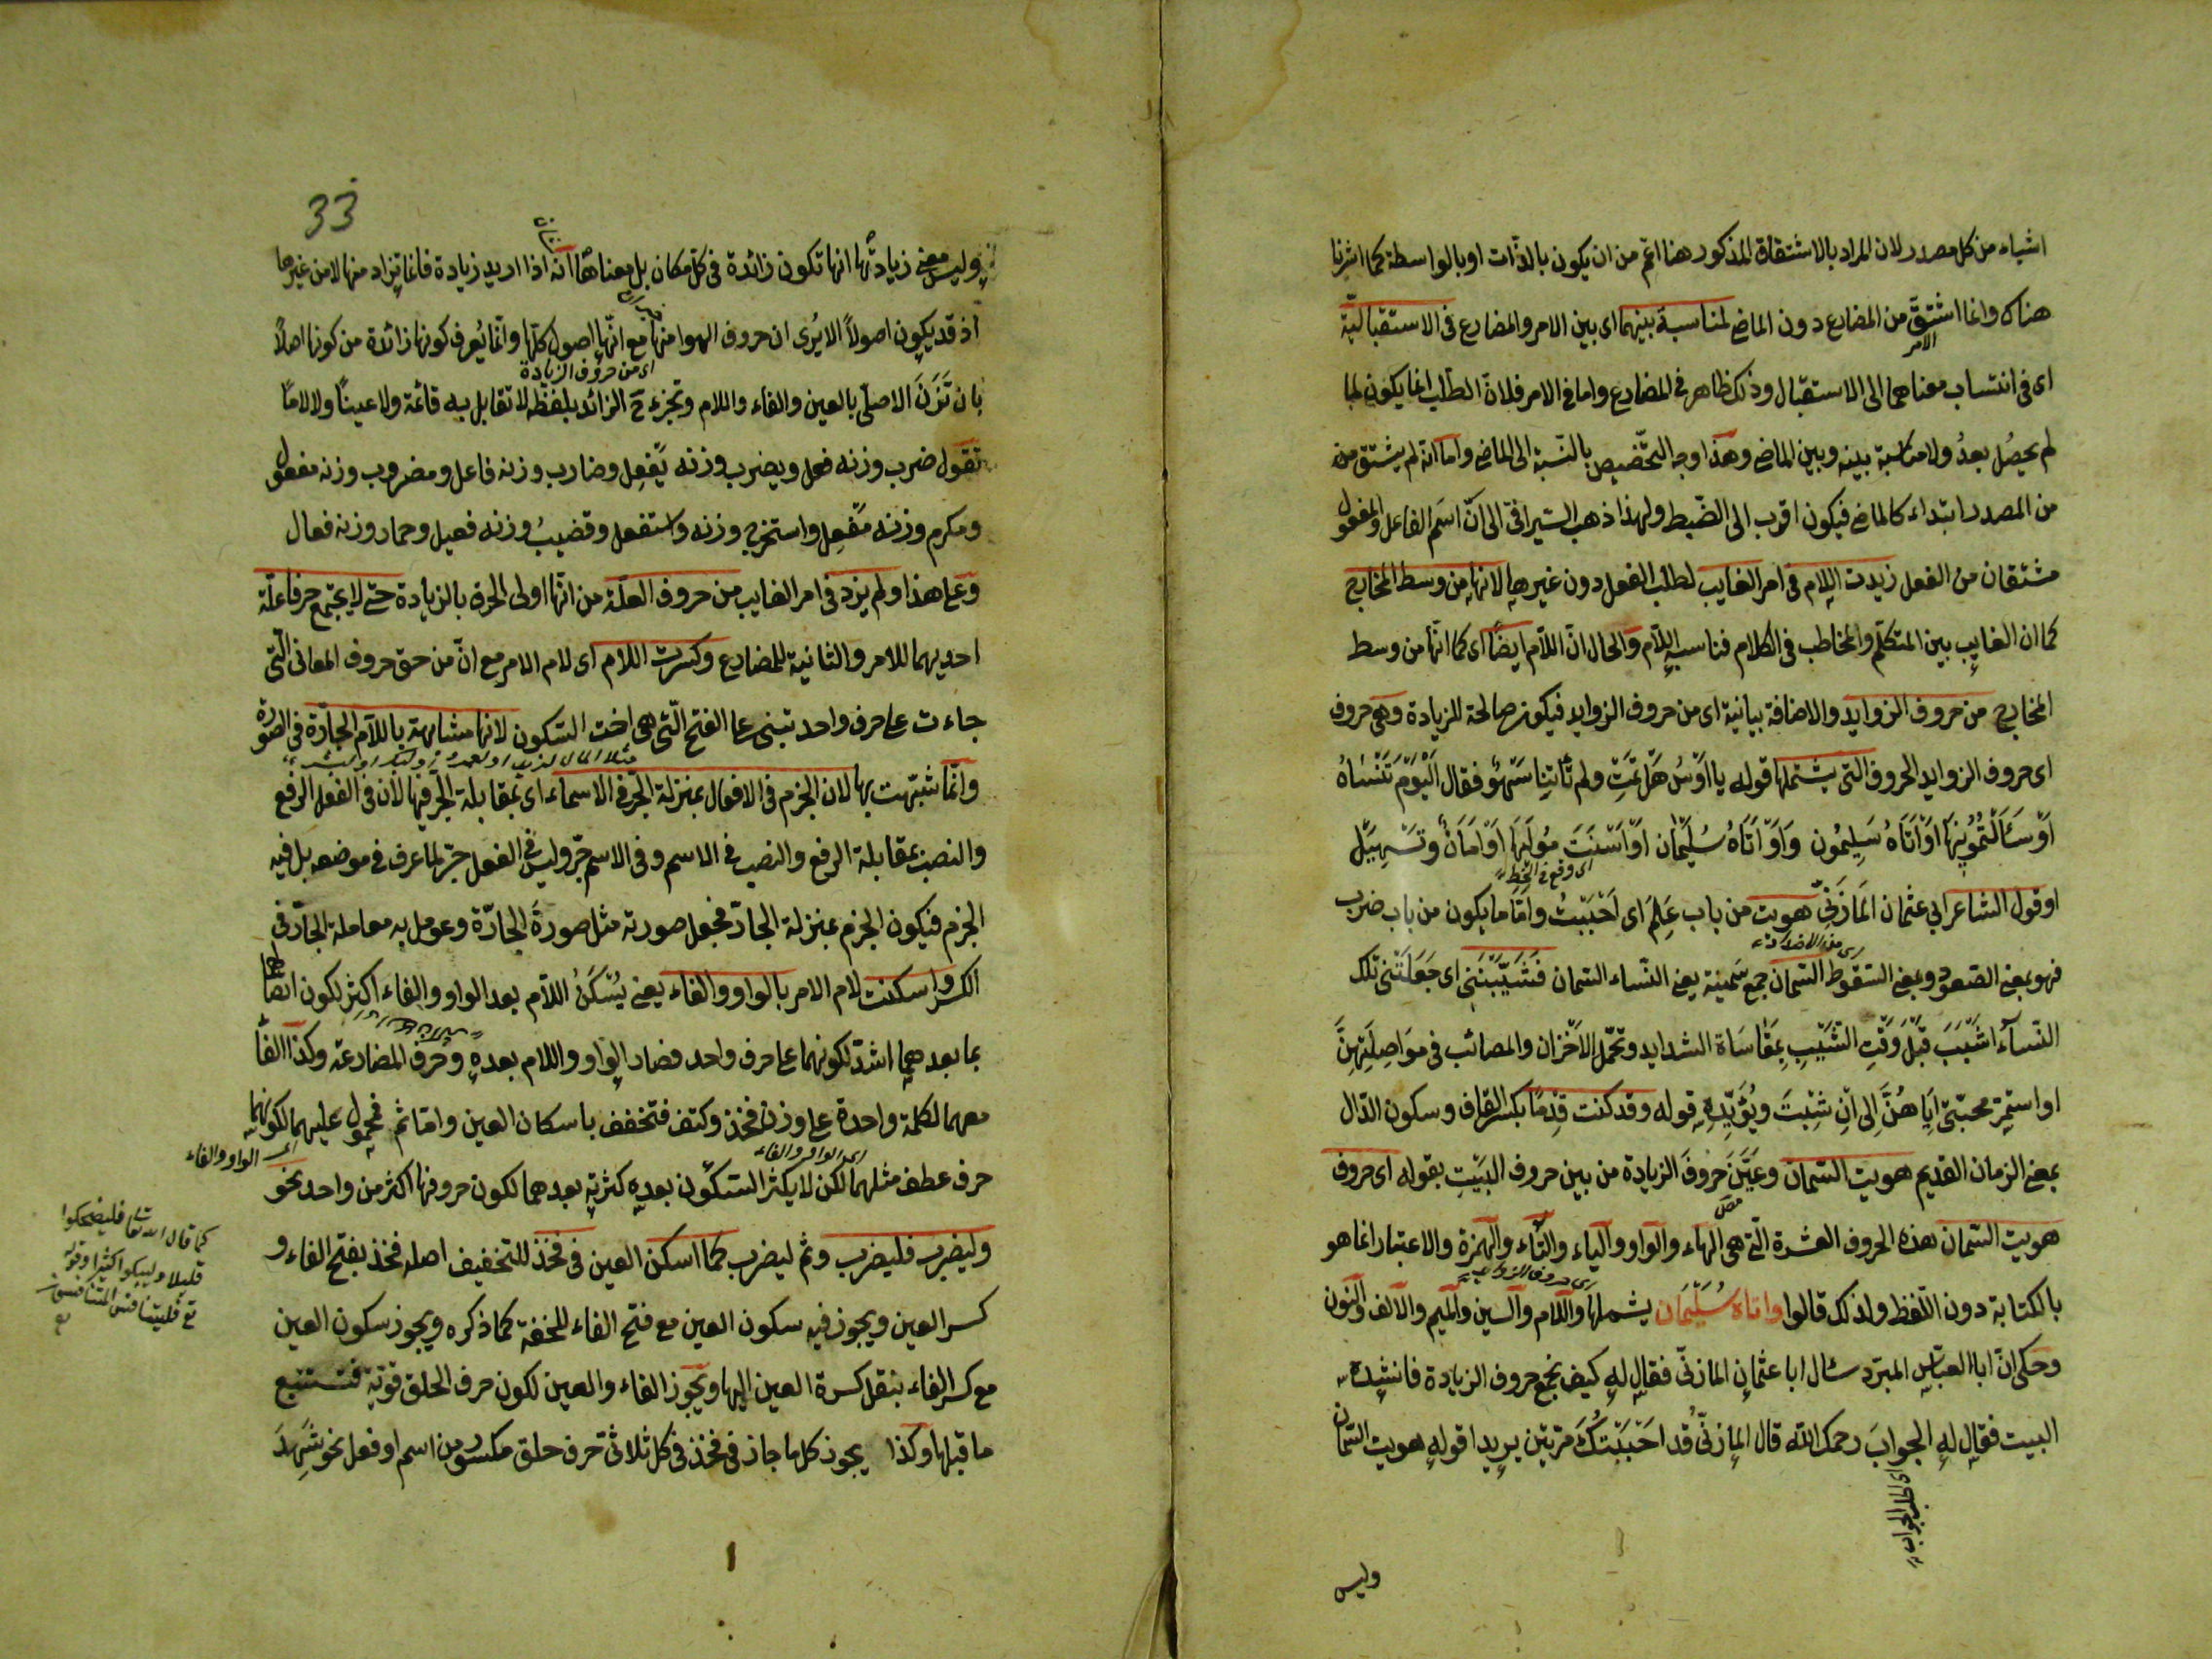 اشياء من كل مصدر لان المراد بالاشتقاق المذكور هنا اعم من ان يكون بالذات او بالواسطة كما اشرنا
هناك وانما اشتق من المضارع دون الماضى لمناسبة بينهما اى بين الامر والمضارع فى الاستقبالية
الامر
اى فى انتساب معناهما الى الاستقبال وذلك ظاهر فى المضارع واما فى الامر فلان الطلب انما يكون لما
لم يحصل بعد ولا مناسبة بينه وبين الماضى وهذا وجه التخصيص بالنسبة الى الماضى واما انه لم يشتق من
من المصدر ابتداء كالماضى فيكون اقرب الى الضبط ولهذا ذهب السيرافى الى ان اسم الفاعل والمفعول
مشتقان من الفعل زيدت اللام فى امر الغايب لطلب الفعل دون غيرها لانها من وسط المخارج
كما ان الغايب بين المتكلم والمخاطب فى الكلام فناسبه اللام والحال ان اللام ايضا اى كما انها من وسط
المخارج من حروف الزوايد والاضافة بيانية اى من حروف الزوايد فيكون صالحة للزيادة وهى حروف
اى حروف الزوايد الحروف التى يشتملها قوله يا اوس هل نمت ولم تأتنا سهو فقال اليوم تنساه
او سألتمونيها او اتاه سليمون واو اتاه سليمان او استن مولها او امان وتسهيل
او قول الشاعر ابى عثمان المازنى هويت من باب علم اى احببت واما ما يكون من باب ضرب
فهو بمعنى الصعود وبمعنى السقوط السمان جمع سمينة يعنى النساء السمان فشيبننى اى جعلتنى تلك
النساء اشيب قبل وقت الشيب بمقاساة الشدايد وتحمل الاحزان والمصائب فى مواصلتهن
او استمر محبتى اياهن الى ان شبت ويؤيده قوله وقد كنت قدما بكسر القاف وسكون الدال
بمعنى الزمان القديم هويت السمان وعين حروف الزيادة من بين حروف البيت بقوله اى حروف
هويت السمان هذه الحروف العشرة التى هى الهاء والواو والياء والتاء والهمزة والاعتبار انما هو
اى حروف الزوايد
بالكتابة دون اللفظ ولذلك قالوا واتاه سليمان يشملها واللام والسين والميم والالف والنون
وحكى ان ابا العباس المبرد سأل ابا عثمان المازنى فقال له كيف نجمع حروف الزيادة فانشده
البيت فقال له الجواب رحمك الله قال المازنى قد احببتك مرتين يريد اقوله هويت السمان
اى اطلب الجواب
وليس
33
وليس معنى زيادتها انها تكون زائدة فى كل مكان بل معناها انه اذا اريد زيادة فانما تزاد منها لا من غيرها
اذ قد يكون اصولا الا يرى ان حروف الهوا منها مع انها اصول كلها وانما يعرف كونها زائدة من كونها اصلا
اى من حروف الزيادة
بان تزن الاصلى بالعين والفاء واللام وتجزء ح الزائد بلفظه لا تقابل به فائة ولا عينا ولا لاما
تقول ضرب وزنه فعل ويضرب وزنه يفعل وضارب وزنه فاعل ومضروب وزنه مفعول
ومكرم وزنه مفعل واستخرج وزنه واستفعل وقضيب وزنه فعيل وحمار وزنه فعال
وعلى هذا ولم يزد فى امر الغايب من حروف العلة من انها اولى الحروف بالزيادة حتى لا يجتمع حرفا علة
احديهما للامر والثانية للمضارع وكسرت اللام اى لام الامر مع ان من حق حروف المعانى التى
جاءت على حرف واحد تبنى على الفتح التى هى اخت السكون لانها مشابهة باللام الجارة فى الصورة
وانما شبهت بها لان الجزم فى الافعال بمنزلة الجر فى الاسماء اى بمقابلة الجر فيها لان فى الفعل الرفع
والنصب بمقابلة الرفع والنصب فى الاسم وفى الاسم جر وليس فى الفعل جر لما عرف فى موضعه بل فيه
الجزم فيكون الجزم بمنزلة الجار فجعل صورته مثل صورة الجارة وعومل به معاملة الجار فى
الكسر واسكنت لام الامر بالواو والفاء يعنى يسكن اللام بعد الواو والفاء اكثر لكون اتصالهما
بما بعدهما اشد لكونهما على حرف واحد فصار الواو واللام بعده وحرف المضارعة وكذا الفا
معهما لكلمة واحدة على وزن فخذ وكتف فتخفف باسكان العين واما ثم فمحمول عليهما لكونها
اى الواو والفاء
اى الواو والفاء
حرف عطف مثلهما لكن لا يكثر السكون بعده كثرته بعدهما لكون حروفها اكثر من واحد نحو
وليضرب فليضرب وثم ليضرب كما اسكن العين فى فخذ للتخفيف اصله فخذ بفتح الفاء و
كسر العين ويجوز فيه سكون العين مع فتح الفاء للخفة كما ذكره ويجوز سكون العين
مع كسر الفاء بنقل كسرة العين اليها ويجوز الفاء والعين لكون حرف الحلق قوية فتستتبع
ما قبلها وكذا يجوز كل ما جاز فى فخذ فى كل ثلاثى حرف حلق مكسور من اسم او فعل نحو شهد
كما قال الله تعا فليضحكوا
قليلا وليبكوا كثيرا وقوله
تع فليتنافس المتنافسون